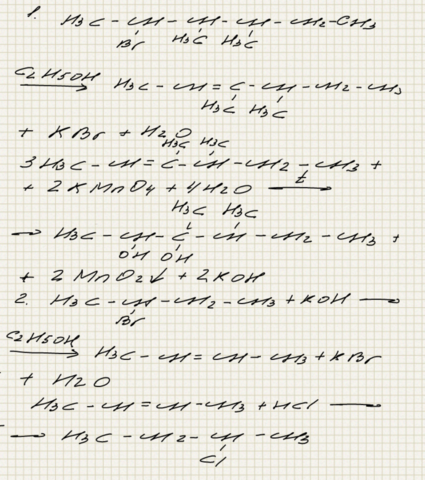 1. H3C - CH - CH - CH - CH2-CH3
Br H3C H3C
C2H5OH H3C - CH = C - CH - CH2 - CH3
H3C H3C
+ KBr + H2O
H3C H3C
3H3C - CH = C - CH - CH2 - CH3 +
+ 2KMnO4 + 4H2O t
H3C H3C
→ H3C - CH - C - CH - CH2 - CH3 +
OH OH
+ 2MnO2↓ + 2KOH
2. H3C - CH - CH2 - CH3 + KOH →
Br
C2H5OH H3C - CH = CH - CH3 + KBr
+ H2O
H3C - CH = CH - CH3 + HCl →
→ H3C - CH2 - CH - CH3
Cl